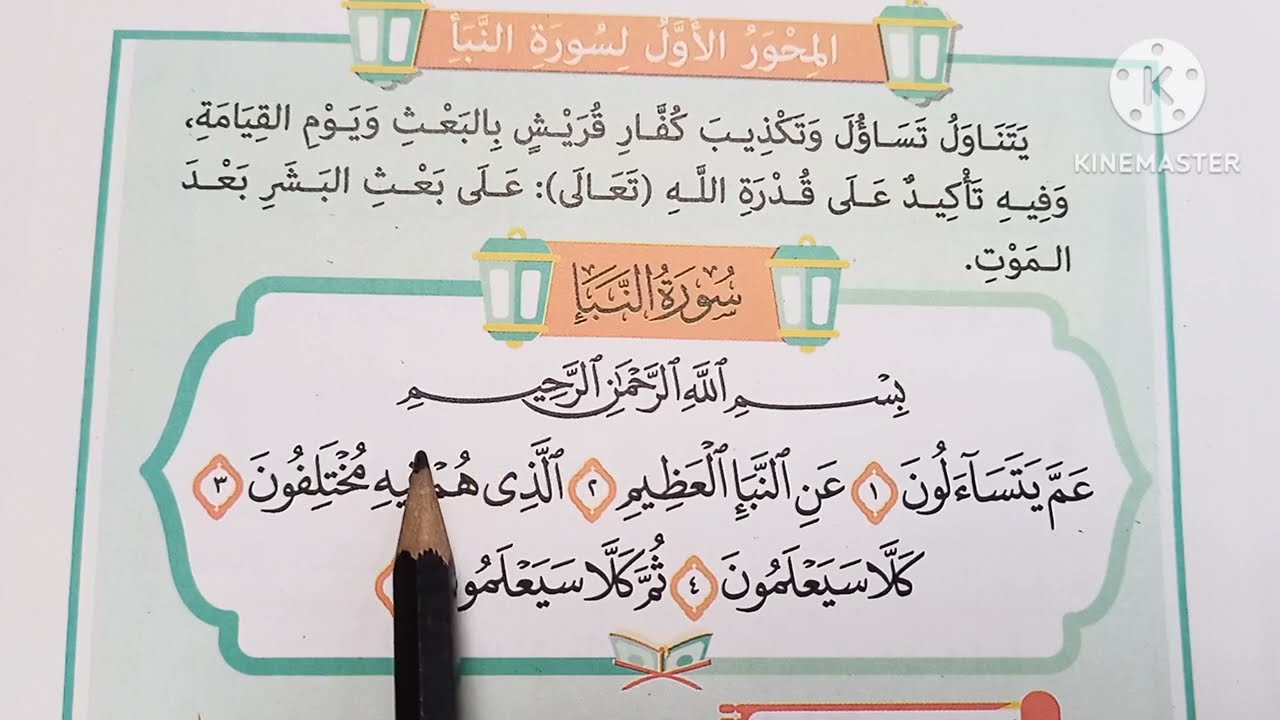 المِحْوَرُ الأَوَّلُ لِسُورَةِ النَّبَأِ
يَتَنَاوَلُ تَسَاؤُلَ وَتَكْذِيبَ كُفَّارِ قُرَيْشٍ بِالبَعْثِ وَيَوْمِ القِيَامَةِ،
وَفِيهِ تَأْكِيدٌ عَلَى قُدْرَةِ اللَّهِ (تَعَالَى): عَلَى بَعْثِ البَشَرِ بَعْدَ
المَوْتِ.
K
KINEMASTER
سُورَةُ النَّبَإِ
بِسْمِ ٱللَّهِ ٱلرَّحْمَٰنِ ٱلرَّحِيمِ
عَمَّ يَتَسَآءَلُونَ ١ عَنِ ٱلنَّبَإِ ٱلْعَظِيمِ ٢ ٱلَّذِى هُمْ مُخْتَلِفُونَ ٣
كَلَّا سَيَعْلَمُونَ ٤ ثُمَّ كَلَّا